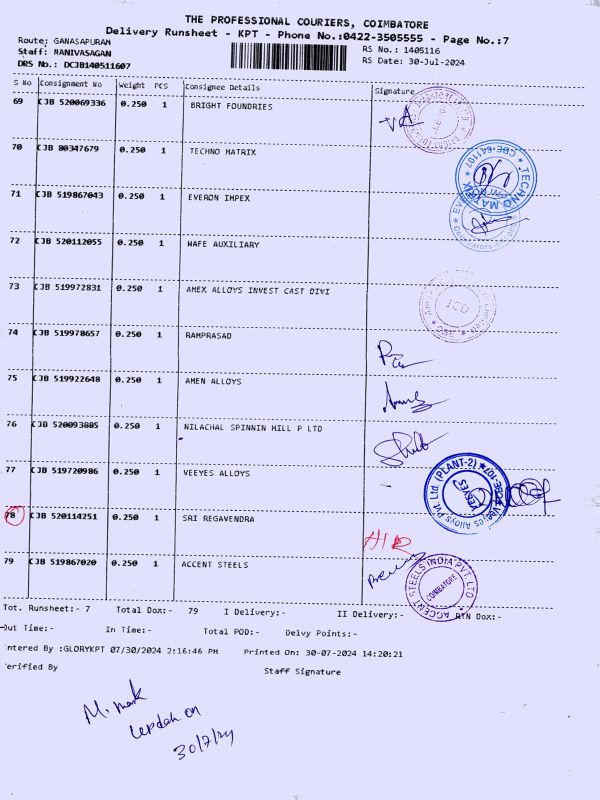 THE PROFESSIONAL COURIERS, COIMBATORE
Delivery Runsheet - KPT - Phone No.:0422-3505555 - Page No.:7
Route: GANASAPURAM
RS No.: 1405116
Staff: MANIVASAGAN
RS Date: 30-Jul-2024
DRS No.: DCJB140511607
S No Consignment No Weight PCS Consignee Details Signature
69 CJB 520069336 0.250 1 BRIGHT FOUNDRIES
70 CJB 80347679 0.250 1 TECHNO MATRIX
TECHNO MATRIX * CBE-641107 *
71 CJB 519867043 0.250 1 EVERON IMPEX
72 CJB 520112055 0.250 1 WAFE AUXILIARY
73 CJB 519972831 0.250 1 AMEX ALLOYS INVEST CAST DIVI
ICD
74 CJB 519978657 0.250 1 RAMPRASAD
75 CJB 519922648 0.250 1 AMEN ALLOYS
76 CJB 520093885 0.250 1 NILACHAL SPINNIN MILL P LTD
77 CJB 519720986 0.250 1 VEEYES ALLOYS
Alloys Pvt. Ltd. (PLANT-2)
VEEYES
78 CJB 520114251 0.250 1 SRI REGAVENDRA
79 CJB 519867020 0.250 1 ACCENT STEELS
ACCENT STEELS INDIA PVT. LTD
COIMBATORE
Tot. Runsheet:- 7 Total Dox:- 79 I Delivery:- II Delivery:- RTN Dox:-
Out Time:- In Time:- Total POD:- Delvy Points:-
ntered By :GLORYKPT 07/30/2024 2:16:46 PM Printed On: 30-07-2024 14:20:21
erified By Staff Signature
30/7/24